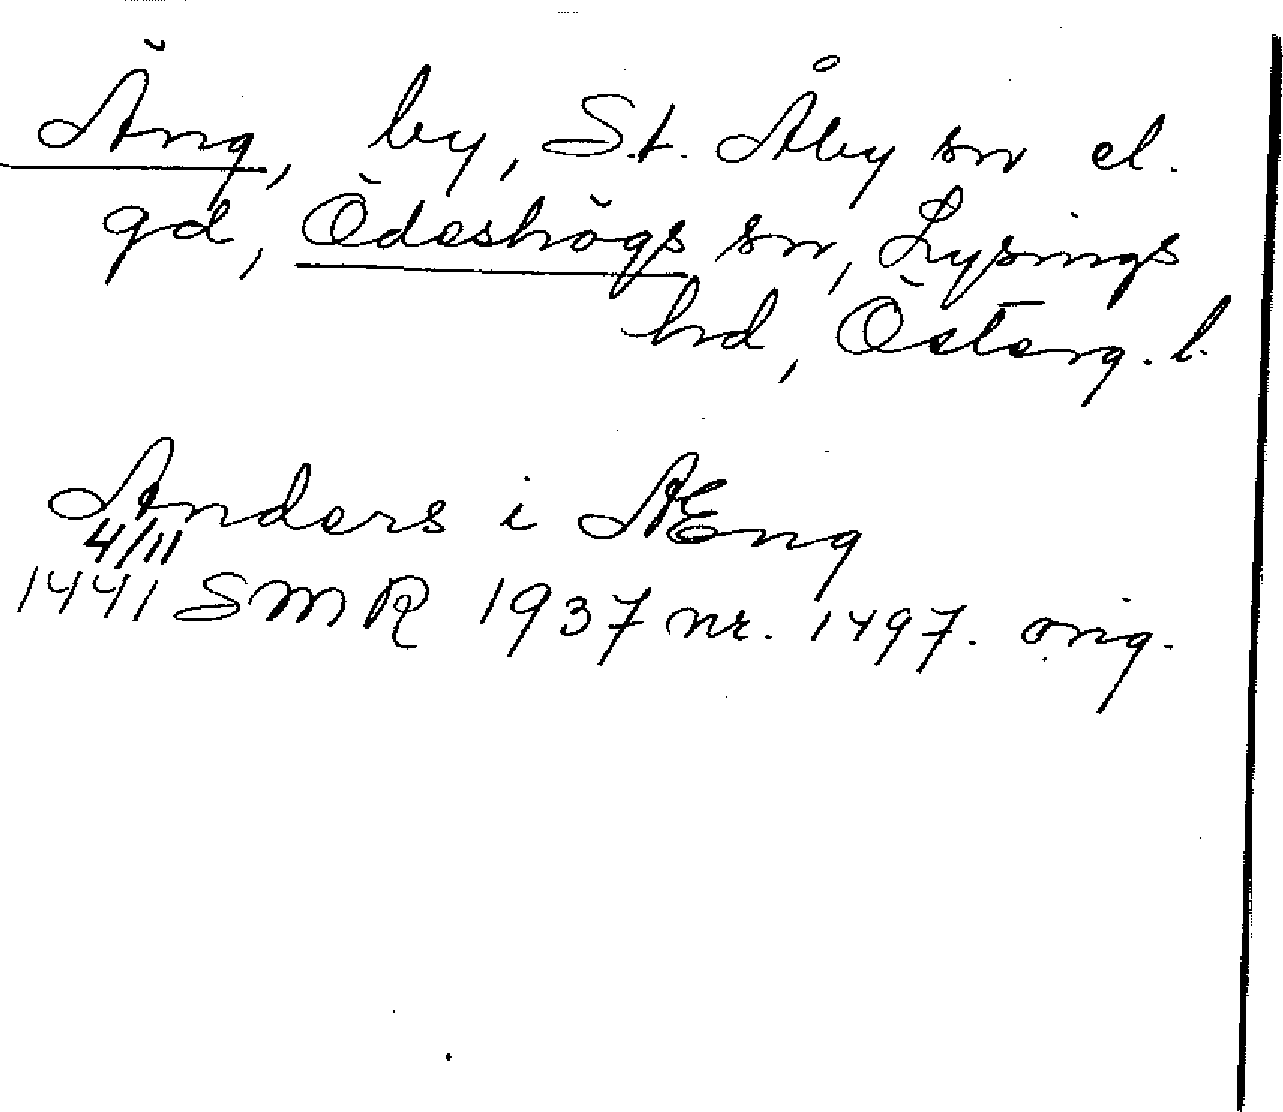 Äng, by, St. Åby sn el.
gd, Ödeshögs sn, Lysings
hd, Österg. l.
Anders i AEng
4/11
1441 SMR 1937 nr. 1497. orig.